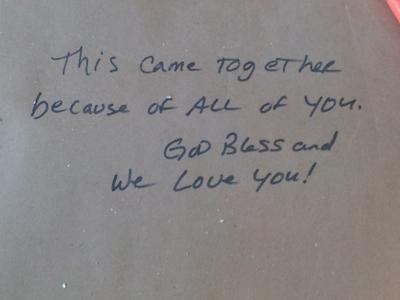 This came Together
because of ALL of you.
GOD Bless and
We Love you!